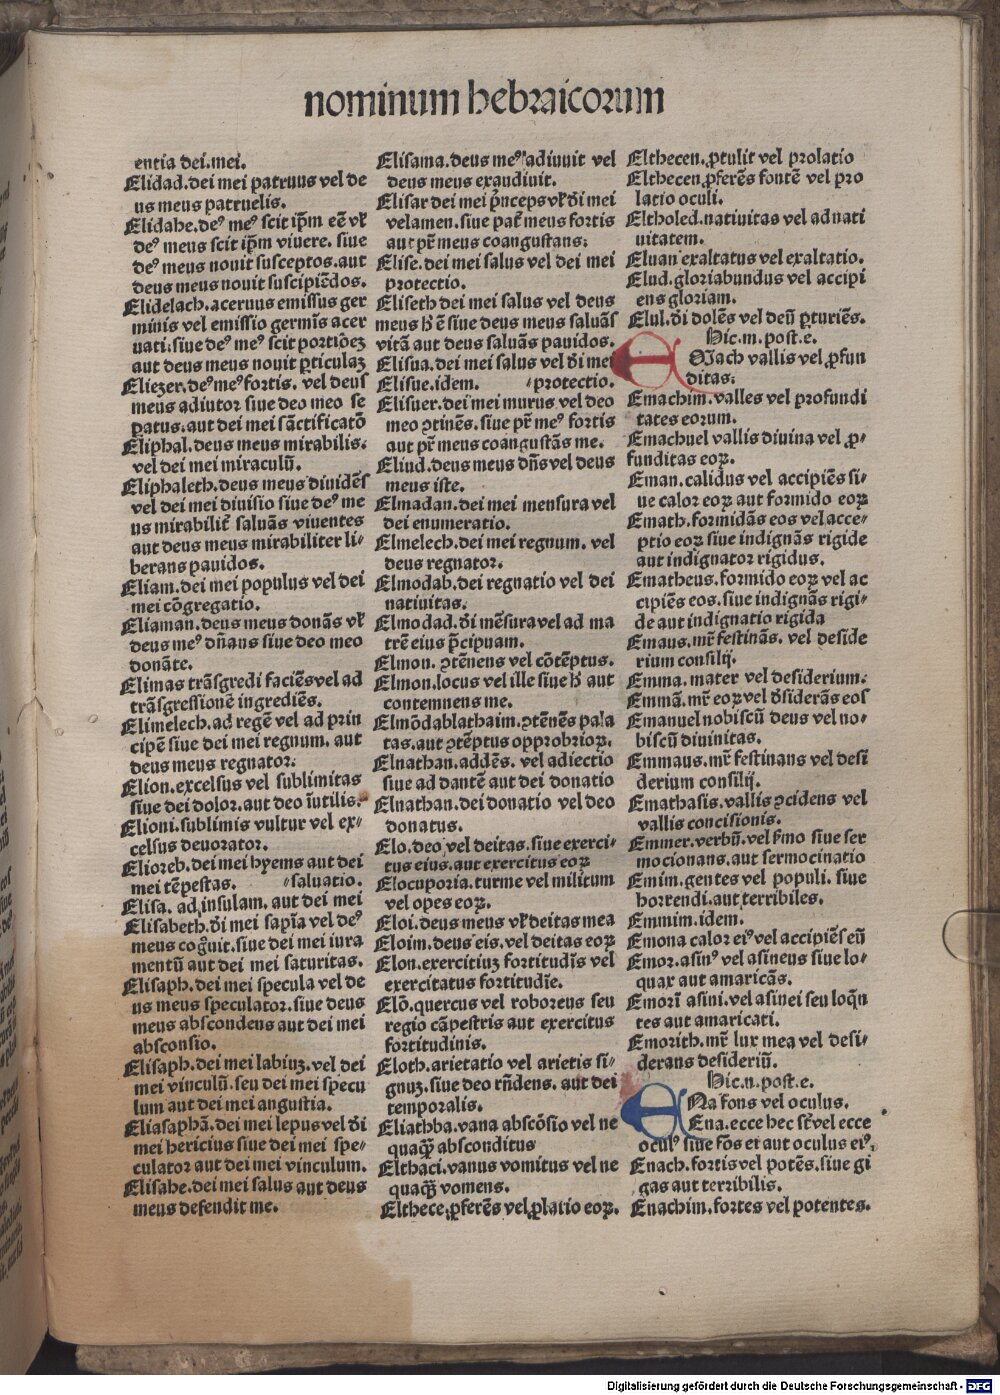 nominum hebraicorum
entia dei.mei.
Elidad.dei mei patruus vel de
us meus patruelis.
Elidahe.deꝰ meꝰ scit ip̄m eē vĺ
deꝰ meus scit ip̄m viuere. siue
deꝰ meus nouit susceptos.aut
deus meus nouit suscipiēdos.
Elidelach.aceruus emissus ger
minis vel emissio germīs acer
uati.siue deꝰ meꝰ scit portiōeꝫ
aut deus meus nouit ꝑticulaꝫ
Eliezer.deꝰ meꝰ fortis. vel deus
meus adiutor siue deo meo se
patus.aut dei mei sāctificatō
Eliphal.deus meus mirabilis.
vel dei mei miraculū.
Eliphaleth.deus meus diuidēs
vel dei mei diuisio siue deꝰ me
us mirabilit̄ saluās viuentes
aut deus meus mirabiliter li⸗
berans pauidos.
Eliam.dei mei populus vel dei
mei cōgregatio.
Eliaman.deus meus donās vĺ
deus meꝰ dn̄ans siue deo meo
donāte.
Elimas trāsgredi faciēs vel ad
trāsgressionē ingrediēs.
Elimelech.ad regē vel ad prin
cipē siue dei mei regnum. aut
deus meus regnator.
Elion.excelsus vel sublimitas
siue dei dolor.aut deo īutilis.
Elioni.sublimis vultur vel ex⸗
celsus deuorator.
Elioreb.dei mei hyems aut dei
mei tēpestas. ⸗saluatio.
Elisa. ad insulam. aut dei mei
Elisabeth.d̄i mei sapīa vel deꝰ
meus cogͦuit.siue dei mei iura
mentū aut dei mei saturitas.
Elisaph.dei mei specula vel de
us meus speculator.siue deus
meus abscondens aut dei mei
absconsio.
Elisaph.dei mei labiuꝫ.vel dei
mei vinculū.seu dei mei specu
lum aut dei mei angustia.
Eliasaphā.dei mei lepus vel d̄i
mei hericius siue dei mei spe⸗
culator aut dei mei vinculum.
Elisahe.dei mei salus aut deus
meus defendit me.
Elisama.deus meꝰ adiuuit vel
deus meus exaudiuit.
Elisar dei mei p̄nceps vĺ d̄i mei
velamen.siue pat̄ meus fortis
aut pr̄ meus coangustans.
Elise.dei mei salus vel dei mei
protectio.
Eliseth dei mei salus vel deus
meus h̄ ē siue deus meus saluās
vitā aut deus saluās pauidos.
Elisua.dei mei salus vel d̄i mei
Elisue.idem. ⸗protectio.
Elisuer.dei mei murus vel deo
meo ꝯtinēs.siue pr̄ meꝰ fortis
aut pr̄ meus coangustās me.
Eliud.deus meus dn̄s vel deus
meus iste.
Elmadan.dei mei mensura vel
dei enumeratio.
Elmelech.dei mei regnum. vel
deus regnator.
Elmodab.dei regnatio vel dei
natiuitas.
Elmodad.d̄i mēsura vel ad ma
trē eius p̄cipuam.
Elmon. ꝯtēnens vel cōtēptus.
Elmon.locus vel ille siue h̄ aut
contemnens me.
Elmōdablathaim.ꝯtēnēs pala
tas.aut ꝯtēptus opprobrioꝝ.
Elnathan.addēs. vel adiectio
siue ad dantē aut dei donatio
Elnathan.dei donatio vel deo
donatus.
Elo.deo vel deitas.siue exerci⸗
tus eius.aut exercitus eoꝝ
Elocuporia.turme vel militum
vel opes eoꝝ.
Eloi.deus meus vĺ deitas mea
Eloim.deus eis.vel deitas eoꝝ
Elon.exercitiuꝫ fortitudīs vel
exercitatus fortitudīe.
Elō.quercus vel roboreus seu
regio cāpestris aut exercitus
fortitudinis.
Eloth.arietatio vel arietis si⸗
gnuꝫ.siue deo rn̄dens. aut dei
temporalis.
Eliathba.vana abscōsio vel ne
quaqͣꝫ absconditus
Elthaci.vanus vomitus vel ne
quaqͣꝫ vomens.
Elthece.ꝓferēs vel ꝓlatio eoꝝ.
Elthecen.ꝓtulit vel prolatio
Elthecen.ꝓferēs fontē vel pro
latio oculi.
Eltholed.natiuitas vel ad nati
uitatem.
Eluan exaltatus vel exaltatio.
Elud.gloriabundus vel accipi
ens gloriam.
Elul.d̄i dolēs vel deū ꝑturiēs.
Hic.m.post.e.
EMach vallis vel ꝓfun
ditas.
Emachim.valles vel profundi
tates eorum.
Emachuel vallis diuina vel ꝓ⸗
funditas eoꝝ.
Eman.calidus vel accipiēs si⸗
ue calor eoꝝ aut formido eoꝝ
Emath.formidās eos vel acce⸗
ptio eoꝝ siue indignās rigide
aut indignator rigidus.
Ematheus.formido eoꝝ vel ac
cipiēs eos.siue indignās rigi⸗
de aut indignatio rigida
Emaus.mr̄ festinās. vel deside
rium consilij.
Emma.mater vel desiderium.
Emmā.mr̄ eoꝝ vel d̄siderās eos
Emanuel nobiscū deus vel no⸗
biscū diuinitas.
Emmaus.mr̄ festinans vel desi
derium consilij.
Emathasis.vallis ꝯcidens vel
vallis concisionis.
Emmer.verbū.vel ẜmo siue ser
mocionans.aut sermocinatio
Emim.gentes vel populi. siue
horrendi.aut terribiles.
Emmim.idem.
Emona calor eiꝰ vel accipiēs eū
Emor.asinꝰ vel asineus siue lo⸗
quax aut amaricās.
Emorī asini.vel asinei seu loqͣn
tes aut amaricati.
Emorith.mr̄ lux mea vel desi⸗
derans desideriū.
Hic.n.post.e.
ENa fons vel oculus.
Ena.ecce hec st̄ vel ecce
oculꝰ siue fōs ei aut oculus eiꝰ.
Enach.fortis vel potēs.siue gi
gas aut terribilis.
Enachim.fortes vel potentes.
Digitalisierung gefördert durch die Deutsche Forschungsgemeinschaft - DFG